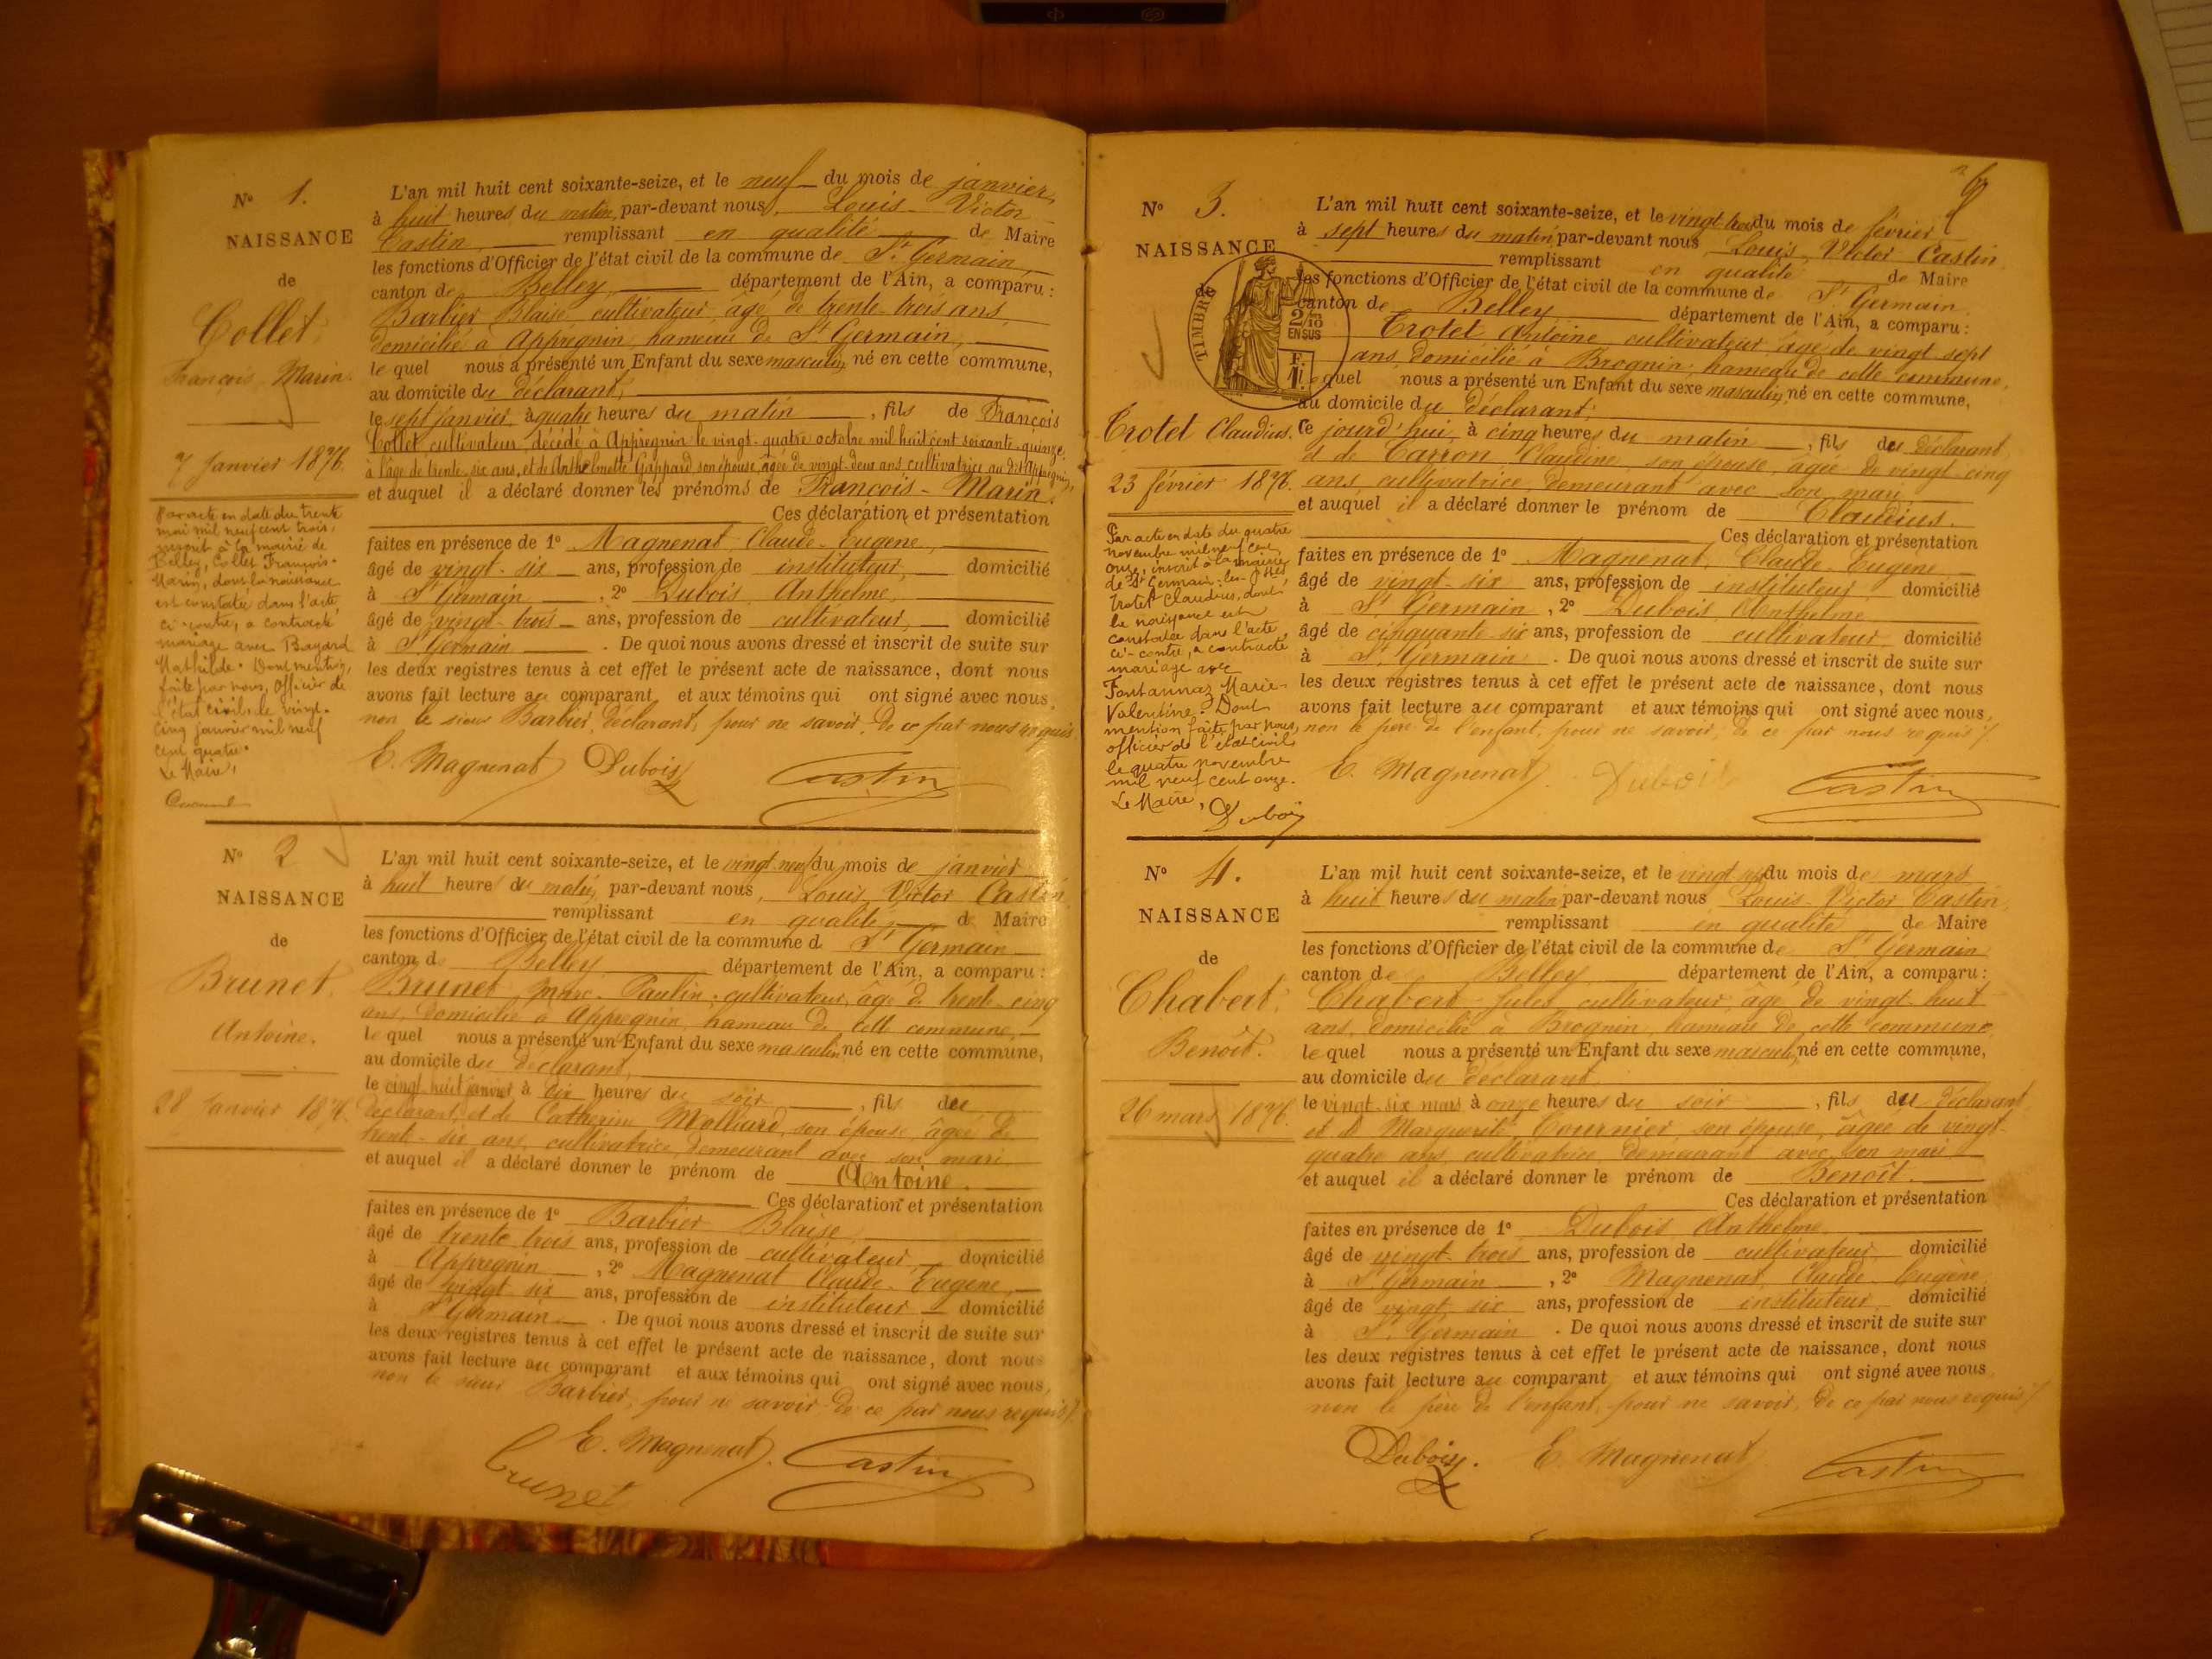 N° 1.
NAISSANCE
de
Collet
François Marin.
7 Janvier 1876.
Par acte en date du trente
mai mil neuf cent trois,
inscrit à la mairie de
Belley, Collet François-
Marin, dont la naissance
est constatée dans l'acte
ci-contre, a contracté
mariage avec Bayard
Mathilde. Dont mention,
faite par nous, Officier de
l'état civil, le vingt-
cinq janvier mil neuf
cent quatre.
Le Maire,
L'an mil huit cent soixante-seize, et le neuf du mois de janvier
à huit heures du matin, par-devant nous, Louis-Victor
Castin remplissant en qualité de Maire
les fonctions d'Officier de l'état civil de la commune de St Germain,
canton de Belley, département de l'Ain, a comparu :
Barbier Blaise, cultivateur, âgé de trente-trois ans,
domicilié à Appregnin, hameau de St Germain,
le quel nous a présenté un Enfant du sexe masculin, né en cette commune,
au domicile du déclarant,
le sept janvier, à quatre heures du matin, fils de François
Collet, cultivateur, décédé à Appregnin le vingt-quatre octobre mil huit cent soixante-quinze,
à l'âge de trente-six ans, et de Anthelmette Gappard, son épouse, âgée de vingt-deux ans, cultivatrice au dit Appregnin,
et auquel il a déclaré donner les prénoms de François-Marin.
Ces déclaration et présentation
faites en présence de 1° Magnenat Claude-Eugène,
âgé de vingt-six ans, profession de instituteur, domicilié
à St Germain, 2° Dubois Anthelme,
âgé de vingt-trois ans, profession de cultivateur, domicilié
à St Germain. De quoi nous avons dressé et inscrit de suite sur
les deux registres tenus à cet effet le présent acte de naissance, dont nous
avons fait lecture au comparant et aux témoins qui ont signé avec nous,
non le sieur Barbier, déclarant, pour ne savoir, de ce par nous requis
E. Magnenat Dubois Castin
N° 2
NAISSANCE
de
Brunet
Antoine.
28 Janvier 1876.
L'an mil huit cent soixante-seize, et le vingt-neuf du mois de janvier
à huit heures du matin, par-devant nous, Louis Victor Castin
remplissant en qualité de Maire
les fonctions d'Officier de l'état civil de la commune d. St Germain
canton d. Belley département de l'Ain, a comparu :
Brunet Marc-Paulin, cultivateur, âgé de trente-cinq
ans, domicilié à Appregnin, hameau de cette commune,
le quel nous a présenté un Enfant du sexe masculin né en cette commune,
au domicile du déclarant,
le vingt-huit janvier à dix heures du soir, fils du
déclarant, et de Catherine Molliard, son épouse, âgée de
trente-six ans, cultivatrice, demeurant avec son mari
et auquel il a déclaré donner le prénom de Antoine.
Ces déclaration et présentation
faites en présence de 1° Barbier Blaise,
âgé de trente trois ans, profession de cultivateur, domicilié
à Appregnin, 2° Magnenat Claude-Eugène,
âgé de vingt six ans, profession de instituteur domicilié
à St Germain. De quoi nous avons dressé et inscrit de suite sur
les deux registres tenus à cet effet le présent acte de naissance, dont nous
avons fait lecture au comparant et aux témoins qui ont signé avec nous,
non le sieur Barbier, pour ne savoir de ce par nous requis
E. Magnenat Castin
Brunet
N° 3.
NAISSANCE
de
TIMBRE
2/10
EN SUS
F.
1.
Trotet Claudius.
23 février 1876.
Par acte en date du quatre
novembre mil neuf cent
onze, inscrit à la mairie
de St Germain-les-
Trotet Claudius, dont
la naissance est
constatée dans l'acte
ci-contre, a contracté
mariage avec
Fontannaz Marie-
Valentine. Dont
mention faite par nous,
officier de l'état civil
le quatre novembre
mil neuf cent onze.
Le Maire,
Dubois
L'an mil huit cent soixante-seize, et le vingt-trois du mois de février
à sept heures du matin par-devant nous Louis Victor Castin
remplissant en qualité de Maire
les fonctions d'Officier de l'état civil de la commune de St Germain
canton de Belley département de l'Ain, a comparu :
Trotet Antoine, cultivateur, âgé de vingt sept
ans, domicilié à Brognin, hameau de cette commune,
le quel nous a présenté un Enfant du sexe masculin, né en cette commune,
au domicile du déclarant,
ce jourd'hui, à cinq heures du matin, fils du déclarant
et de Carron Claudine, son épouse, âgée de vingt-cinq
ans, cultivatrice, demeurant avec son mari
et auquel il a déclaré donner le prénom de Claudius.
Ces déclaration et présentation
faites en présence de 1° Magnenat, Claude-Eugène
âgé de vingt-six ans, profession de instituteur, domicilié
à St Germain, 2° Dubois Anthelme
âgé de cinquante-six ans, profession de cultivateur, domicilié
à St Germain. De quoi nous avons dressé et inscrit de suite sur
les deux registres tenus à cet effet le présent acte de naissance, dont nous
avons fait lecture au comparant et aux témoins qui ont signé avec nous,
non le père de l'enfant, pour ne savoir, de ce par nous requis
E. Magnenat Dubois Castin
N° 4.
NAISSANCE
de
Chabert
Benoît.
26 mars 1876.
L'an mil huit cent soixante-seize, et le vingt sept du mois de mars
à huit heures du matin par-devant nous Louis-Victor Castin
remplissant en qualité de Maire
les fonctions d'Officier de l'état civil de la commune de St Germain
canton de Belley département de l'Ain, a comparu :
Chabert Jules, cultivateur, âgé de vingt-huit
ans, domicilié à Brognin, hameau de cette commune
le quel nous a présenté un Enfant du sexe masculin, né en cette commune,
au domicile du déclarant
le vingt-six mars à onze heures du soir, fils du déclarant
et de Marguerite Cournier son épouse, âgée de vingt-
quatre ans, cultivatrice, demeurant avec son mari
et auquel il a déclaré donner le prénom de Benoît.
Ces déclaration et présentation
faites en présence de 1° Dubois Anthelme
âgé de vingt-trois ans, profession de cultivateur domicilié
à St Germain, 2° Magnenat, Claude-Eugène
âgé de vingt six ans, profession de instituteur domicilié
à St Germain. De quoi nous avons dressé et inscrit de suite sur
les deux registres tenus à cet effet le présent acte de naissance, dont nous
avons fait lecture au comparant et aux témoins qui ont signé avec nous
non le père de l'enfant, pour ne savoir, de ce par nous requis
Dubois. E. Magnenat Castin